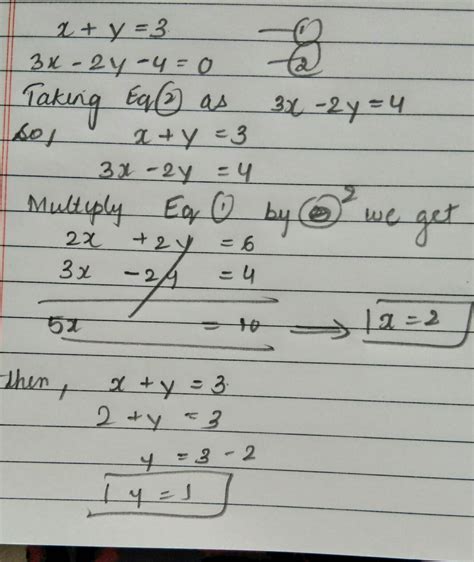 x + y = 3 —①
3x - 2y - 4 = 0 —②
Taking Eq ② as 3x - 2y = 4
so, x + y = 3
3x - 2y = 4
Multiply Eq ① by 2 we get
2x + 2y = 6
3x - 2y = 4
5x = 10 → x = 2
then, x + y = 3
2 + y = 3
y = 3 - 2
y = 1